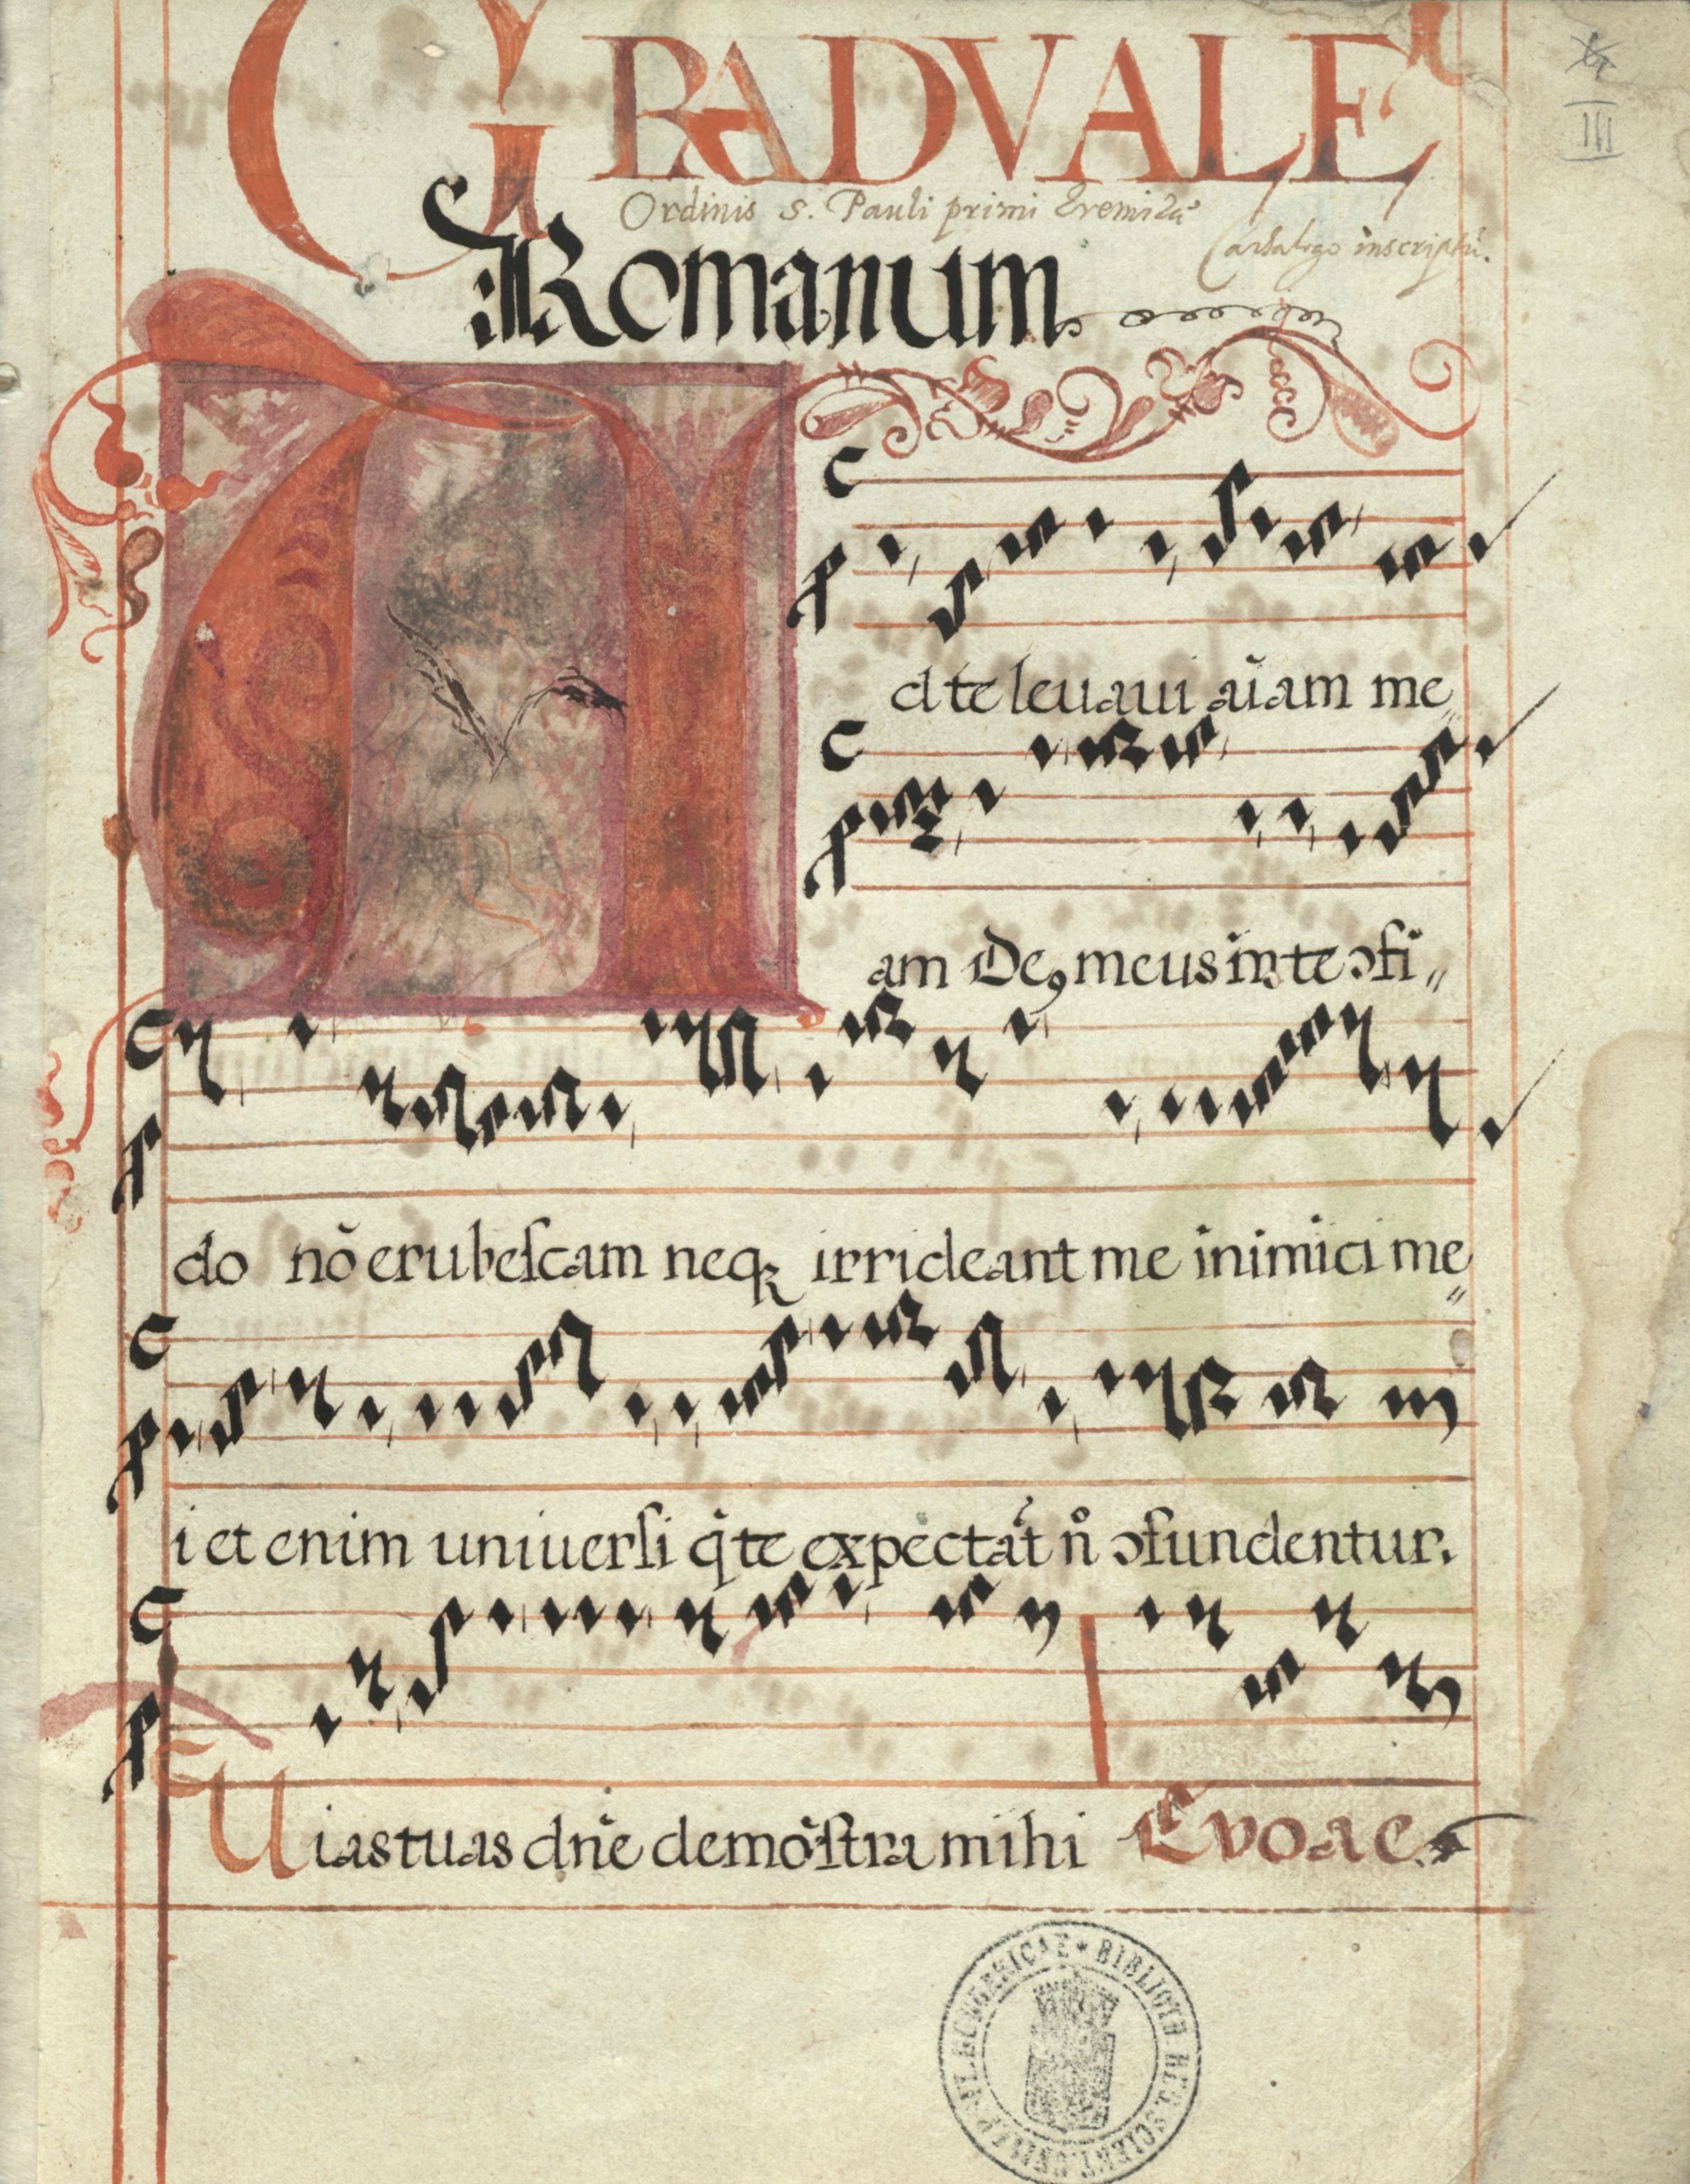 GRADVALE
Ordinis S. Pauli primi Eremitæ
Catalogo inscriptū.
Romanum
III
Ad te leuaui aīam me
am De9 meus in te ↄfi〃
do nō erubeſcam neqꝫ irrideant me inimici me〃
i et enim uniuerſi q̇ te expectāt n̊ ↄfundentur.
Uias tuas dn̄e demōſtra mihi Evoae
BIBLIOTH